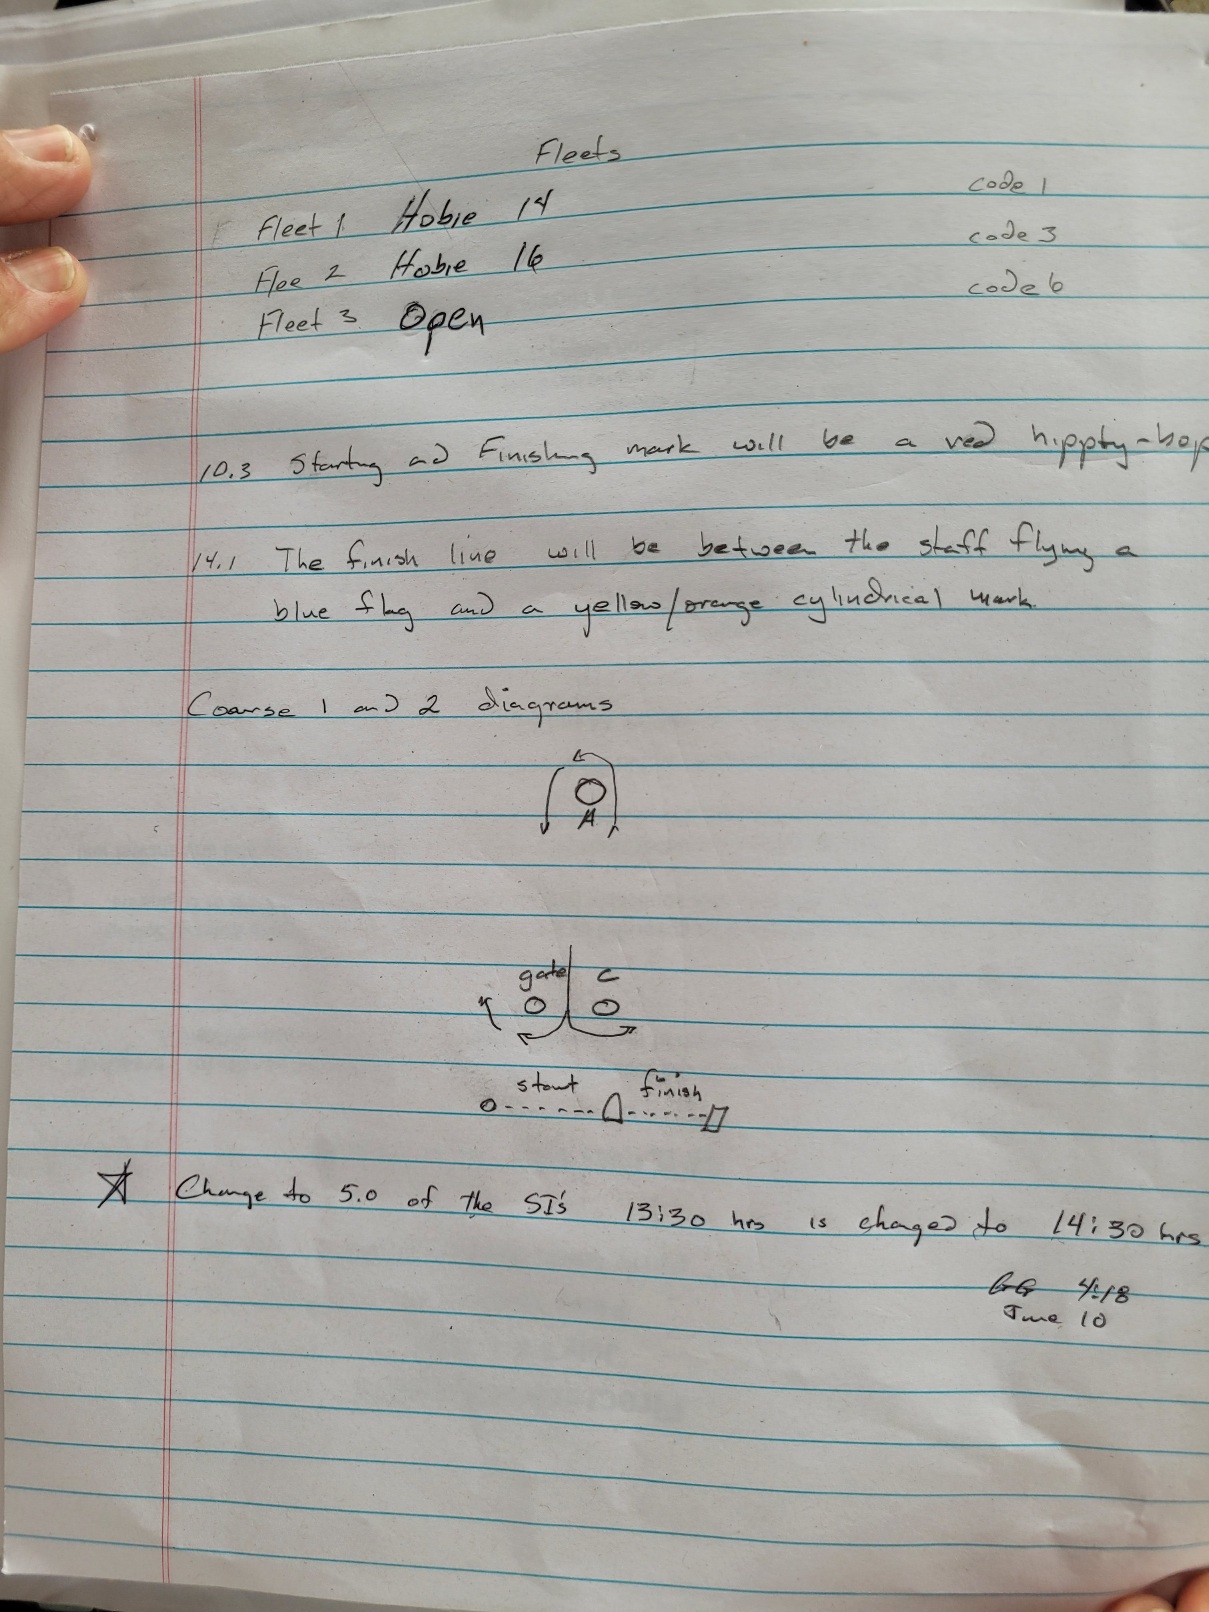 Fleets
Fleet 1 Hobie 14 code 1
Flee 2 Hobie 16 code 3
Fleet 3 Open code 6
10.3 Starting and Finishing mark will be a red hippty-hop
14.1 The finish line will be between the staff flying a
blue flag and a yellow/orange cylindrical mark.
Coarse 1 and 2 diagrams
A
gate C
start finish
Change to 5.0 of the SI's 13:30 hrs is changed to 14:30 hrs
GG 4:18
June 10